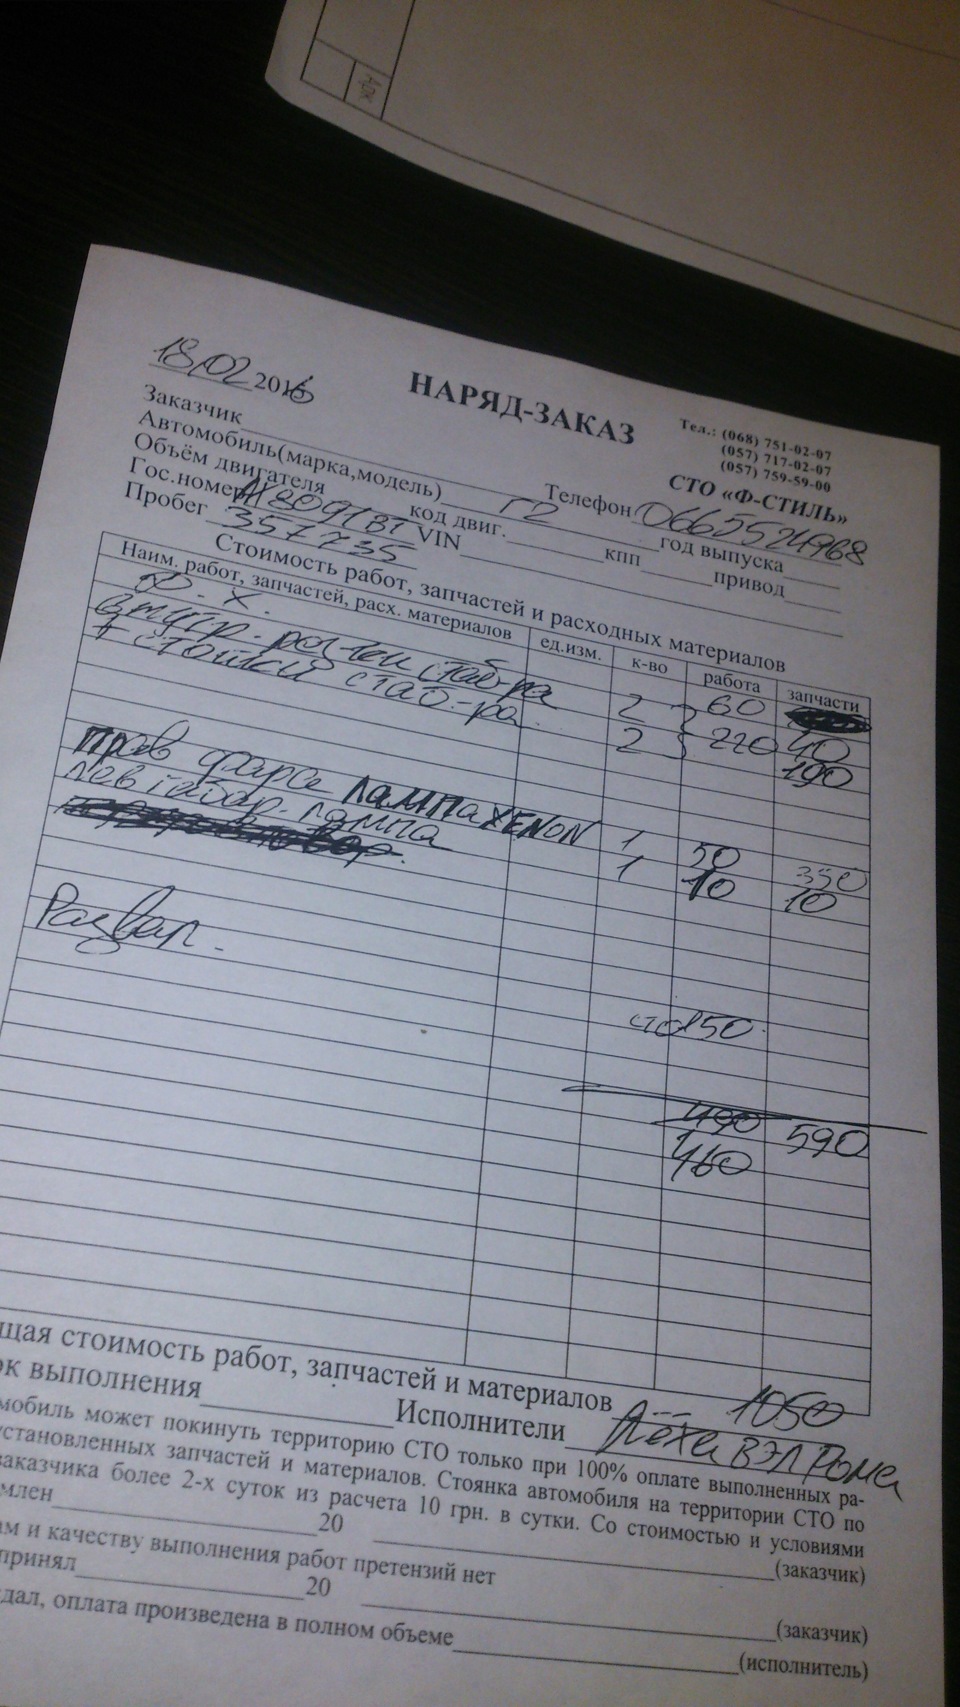 18,02 2016
НАРЯД-ЗАКАЗ
Тел.: (068) 751-02-07
(057) 717-02-07
(057) 759-59-00
СТО «Ф-СТИЛЬ»
Заказчик Телефон 0665524968
Автомобиль(марка,модель) год выпуска
Объём двигателя код двиг. кпп привод
Гос.номер VIN
Пробег 357735
Стоимость работ, запчастей и расходных материалов
Наим. работ, запчастей, расх. материалов ед.изм. к-во работа запчасти
Ф. Х. 60
втулр. рез-ки стаб-ра 2 220 40
+ стойки стаб-ра. 2 190
прав фара лампа XENON 1 50 350
лев габар. лампа 1 10 10
Развал. сто 150
490 590
460
щая стоимость работ, запчастей и материалов 1050
ок выполнения Исполнители Лёха ВЭЛ Рома
мобиль может покинуть территорию СТО только при 100% оплате выполненных ра-
установленных запчастей и материалов. Стоянка автомобиля на территории СТО по
заказчика более 2-х суток из расчета 10 грн. в сутки. Со стоимостью и условиями
млен 20 (заказчик)
ам и качеству выполнения работ претензий нет
принял 20 (заказчик)
дал, оплата произведена в полном объеме (исполнитель)